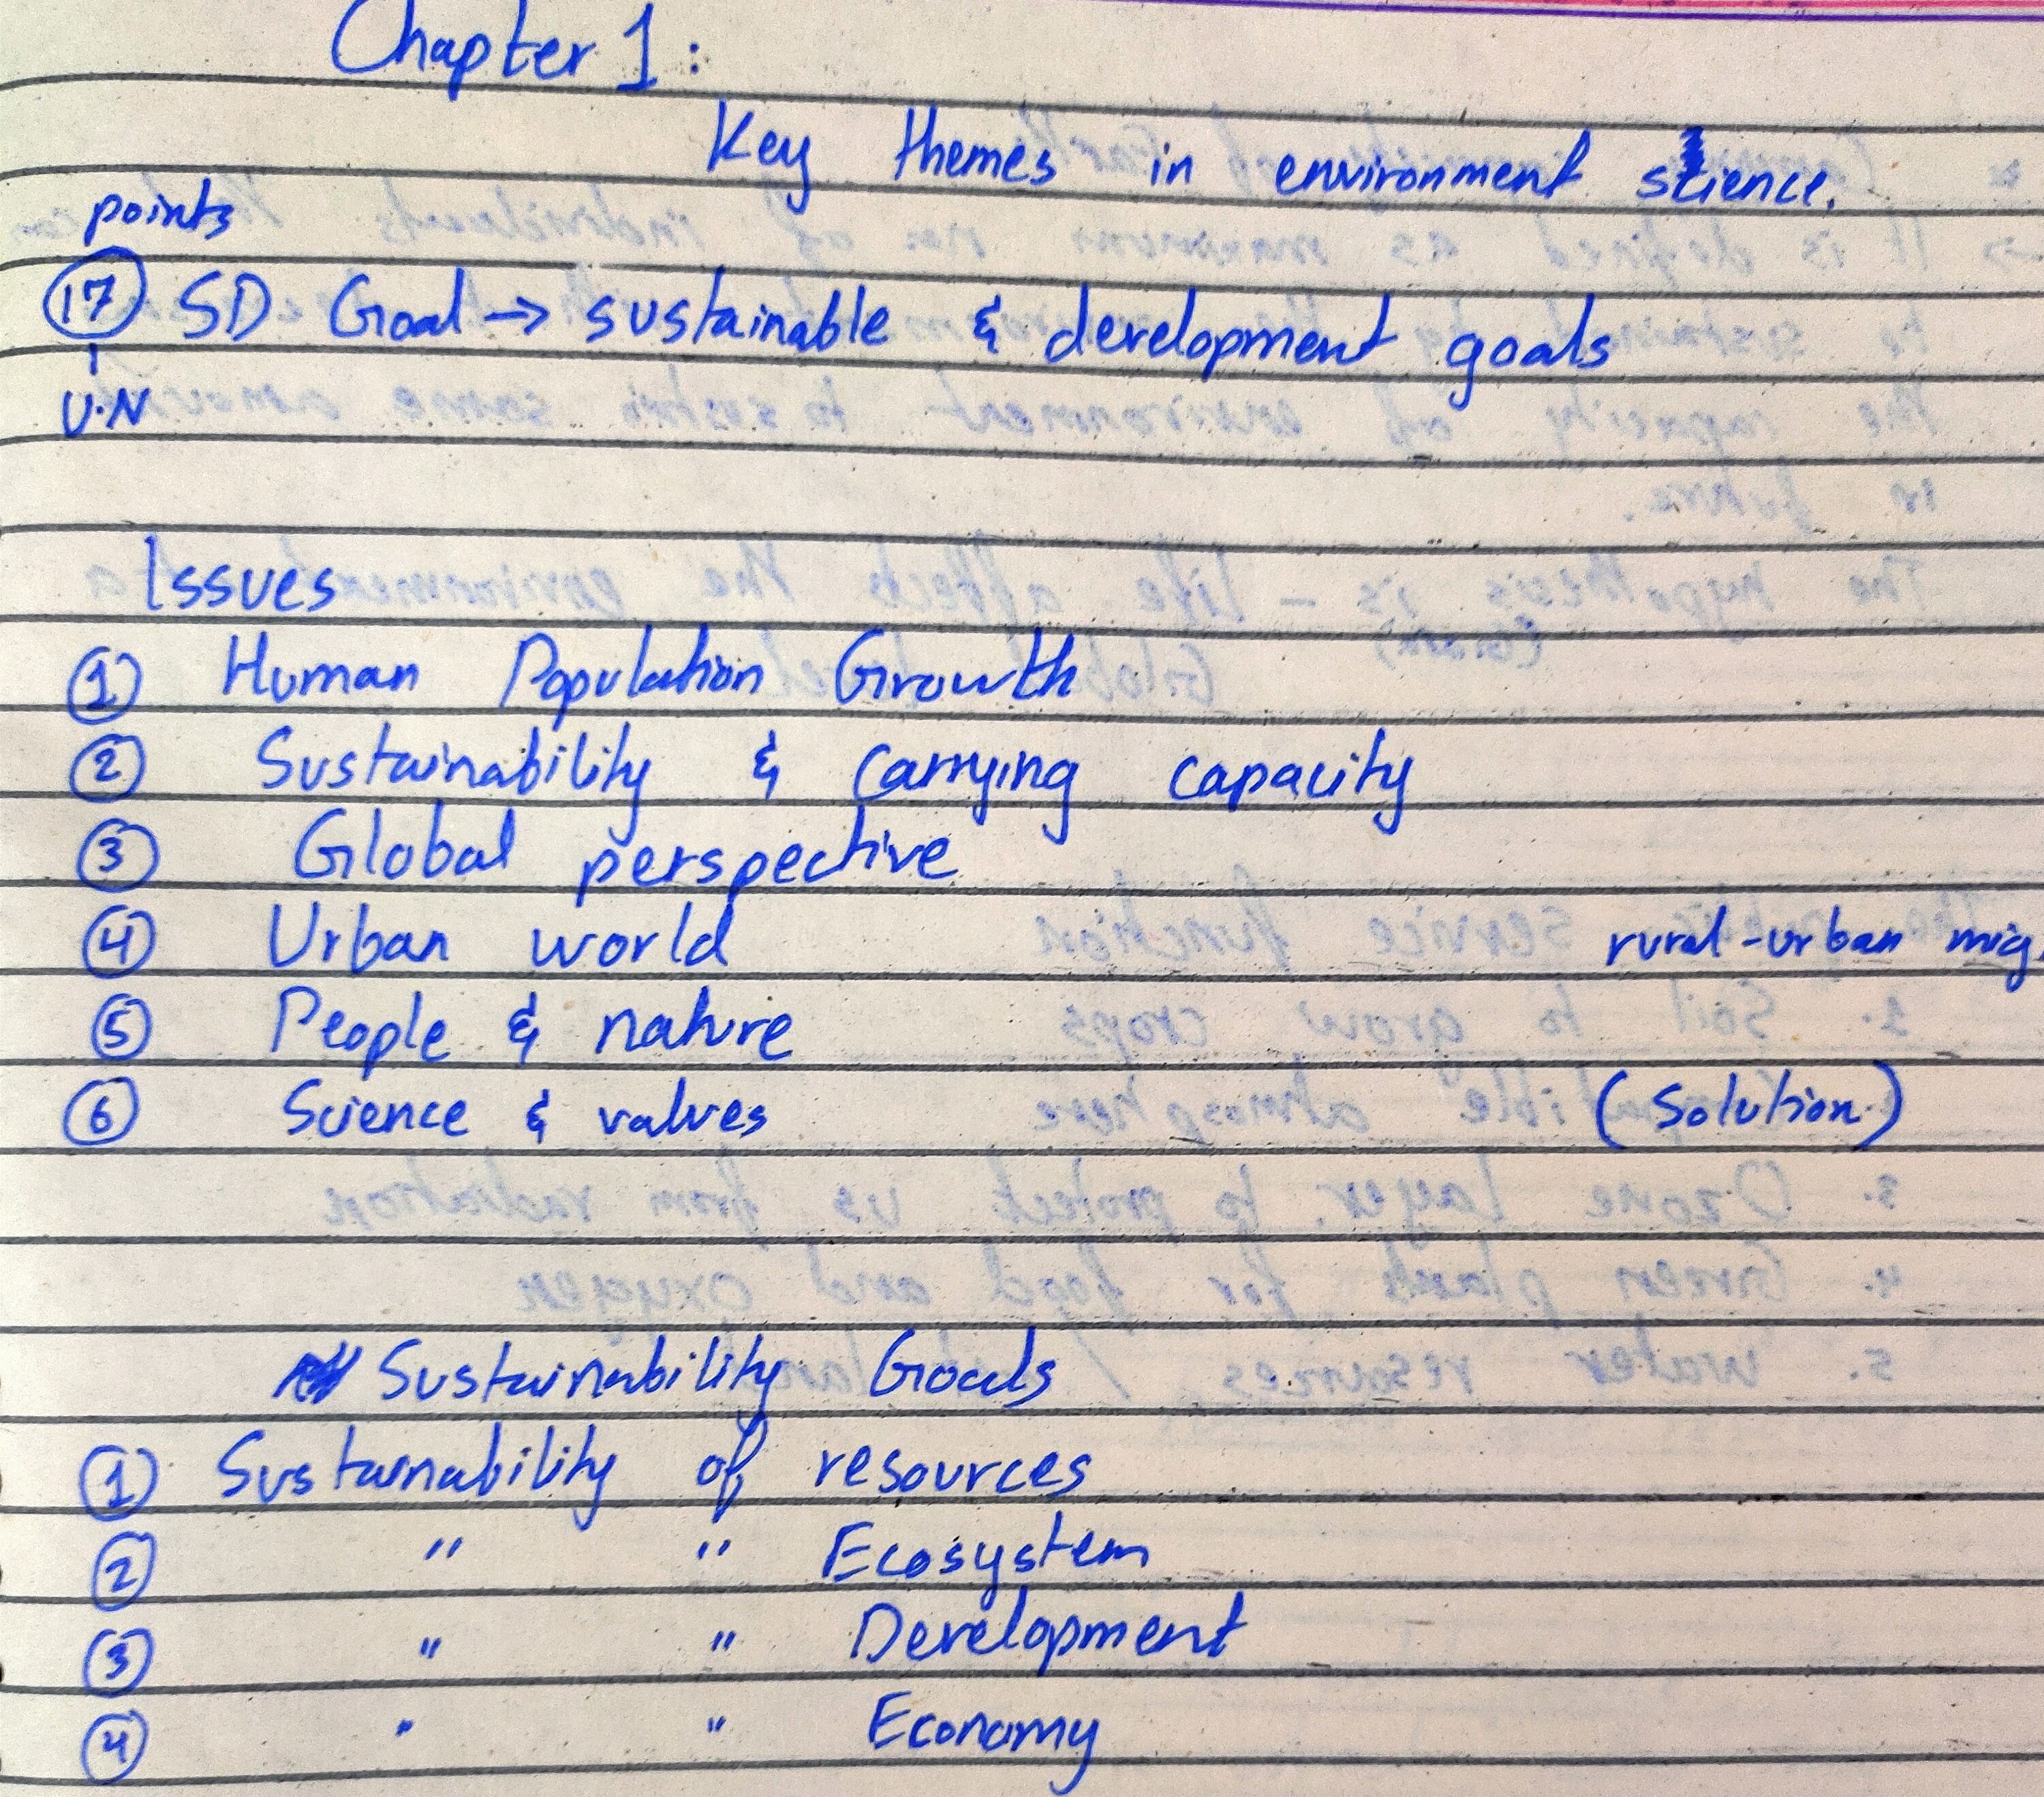 Chapter 1:
Key themes in environment science.
points
17 SD Goal → sustainable & development goals
U.N
Issues
1 Human Population Growth
2 Sustainability & carrying capacity
3 Global perspective
4 Urban world rural-urban mig.
5 People & nature
6 Science & values (Solution)
Sustainability Goals
1 Sustainability of resources
2 " " Ecosystem
3 " " Development
4 " " Economy